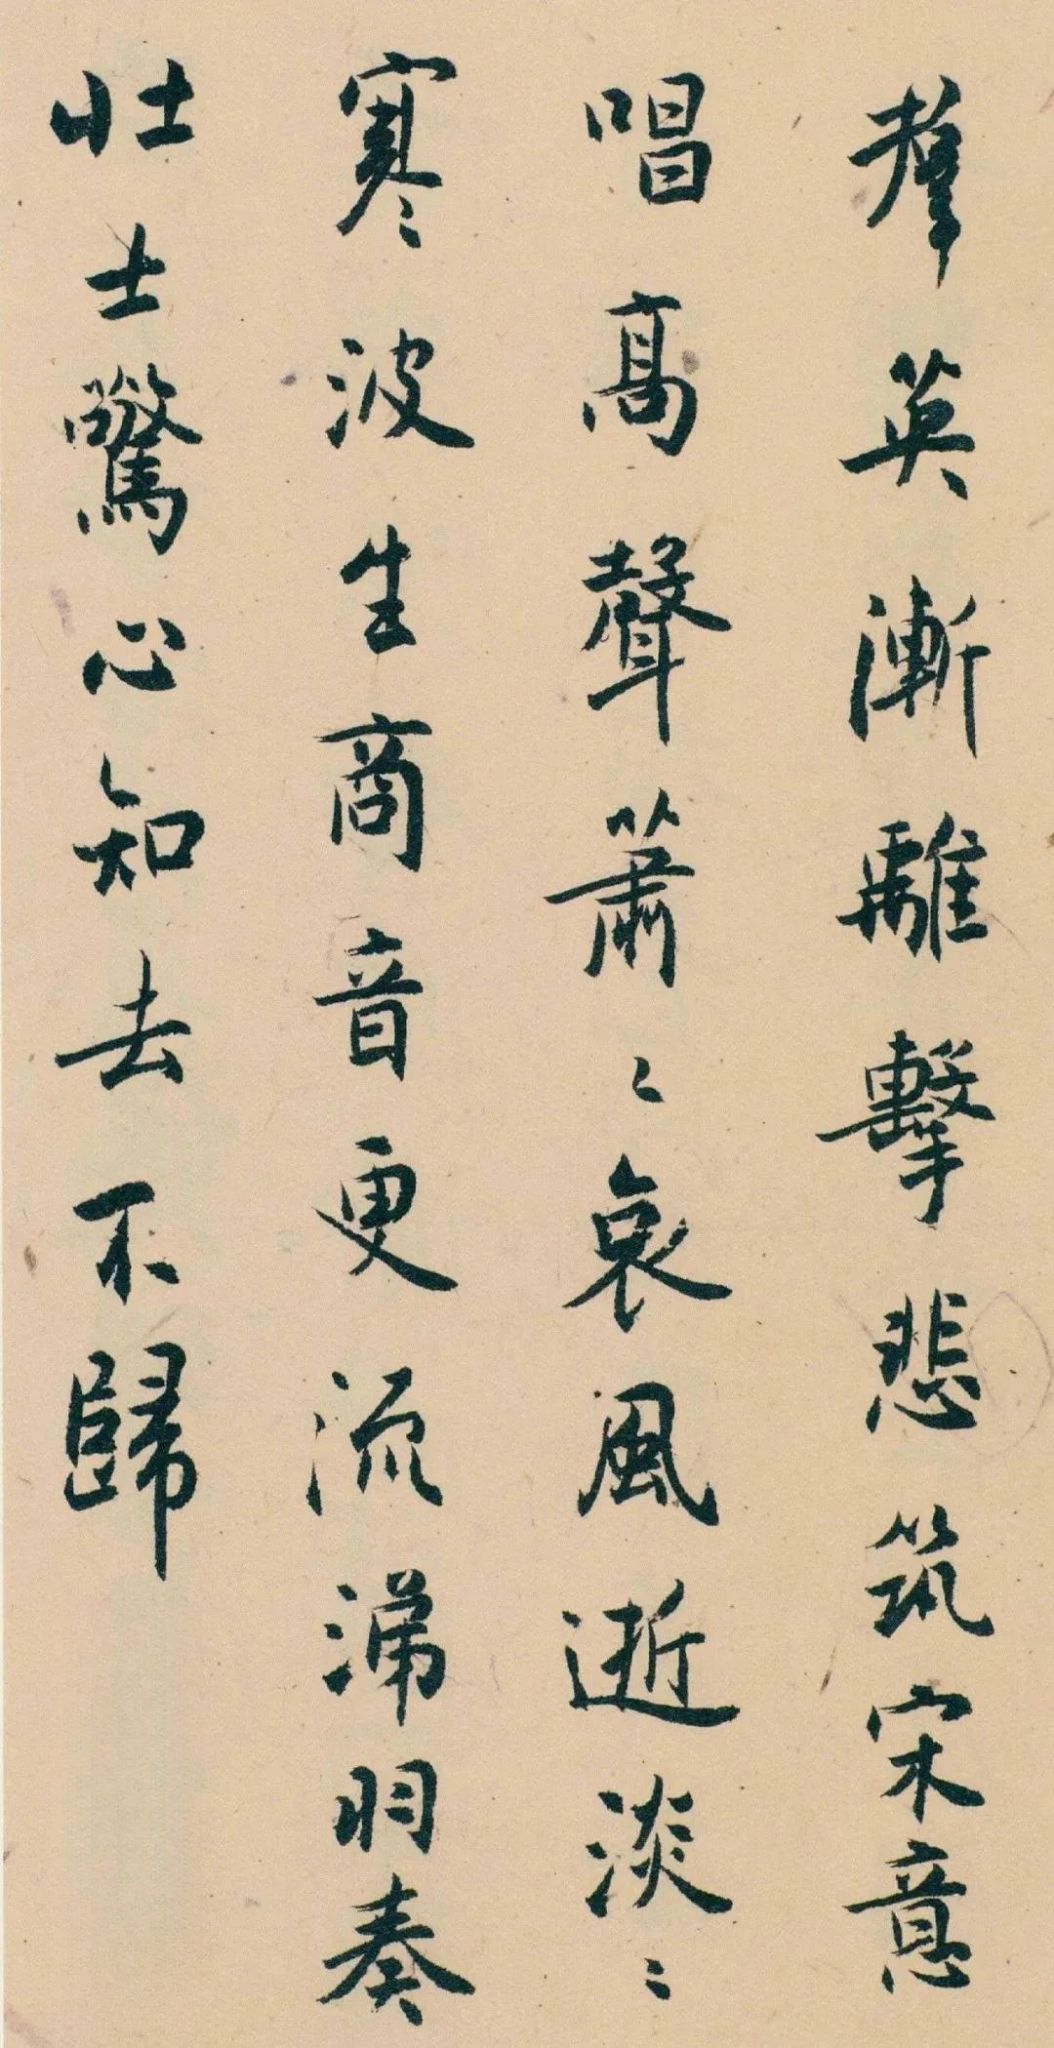 羣英漸離擊悲筑宋意
唱高聲蕭〻哀風逝淡〻
寒波生商音更流涕羽奏
壯士驚心知去不歸